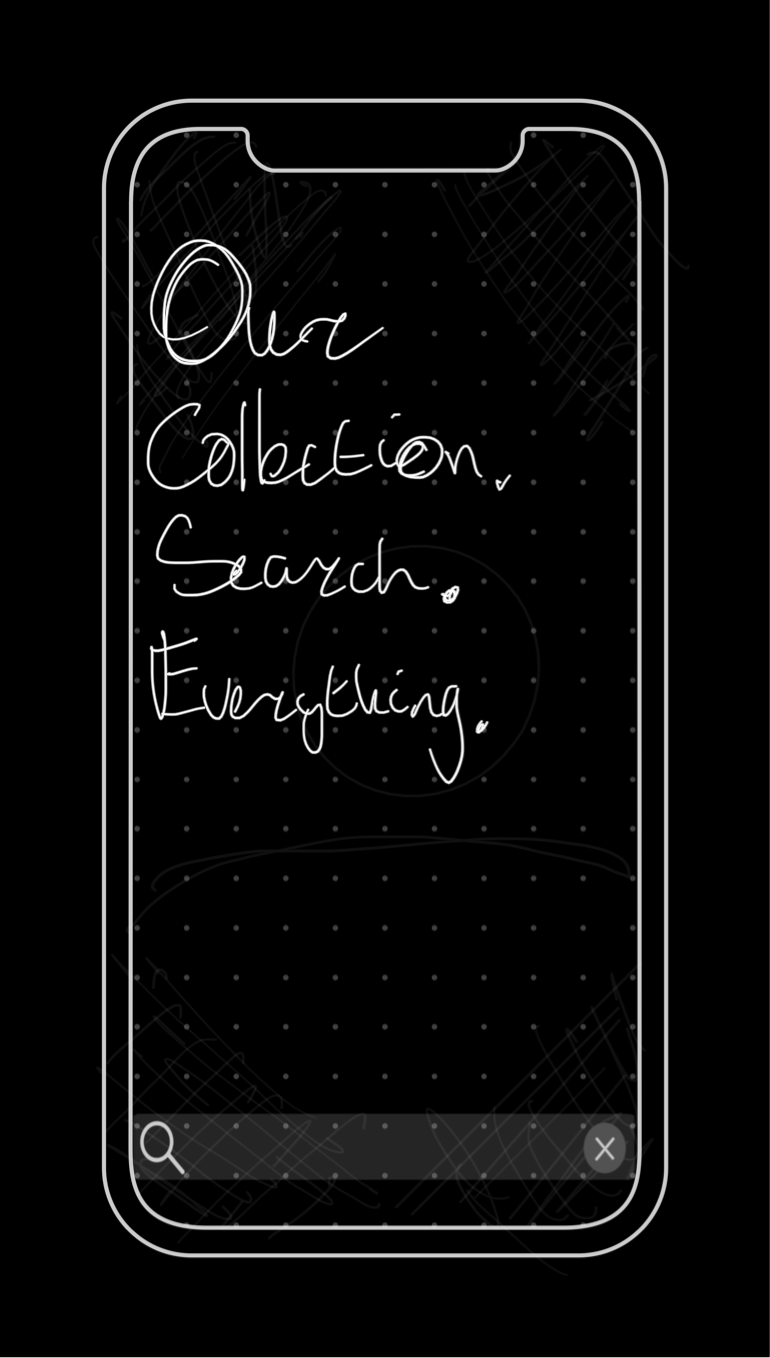 Our
Collection.
Search.
Everything.